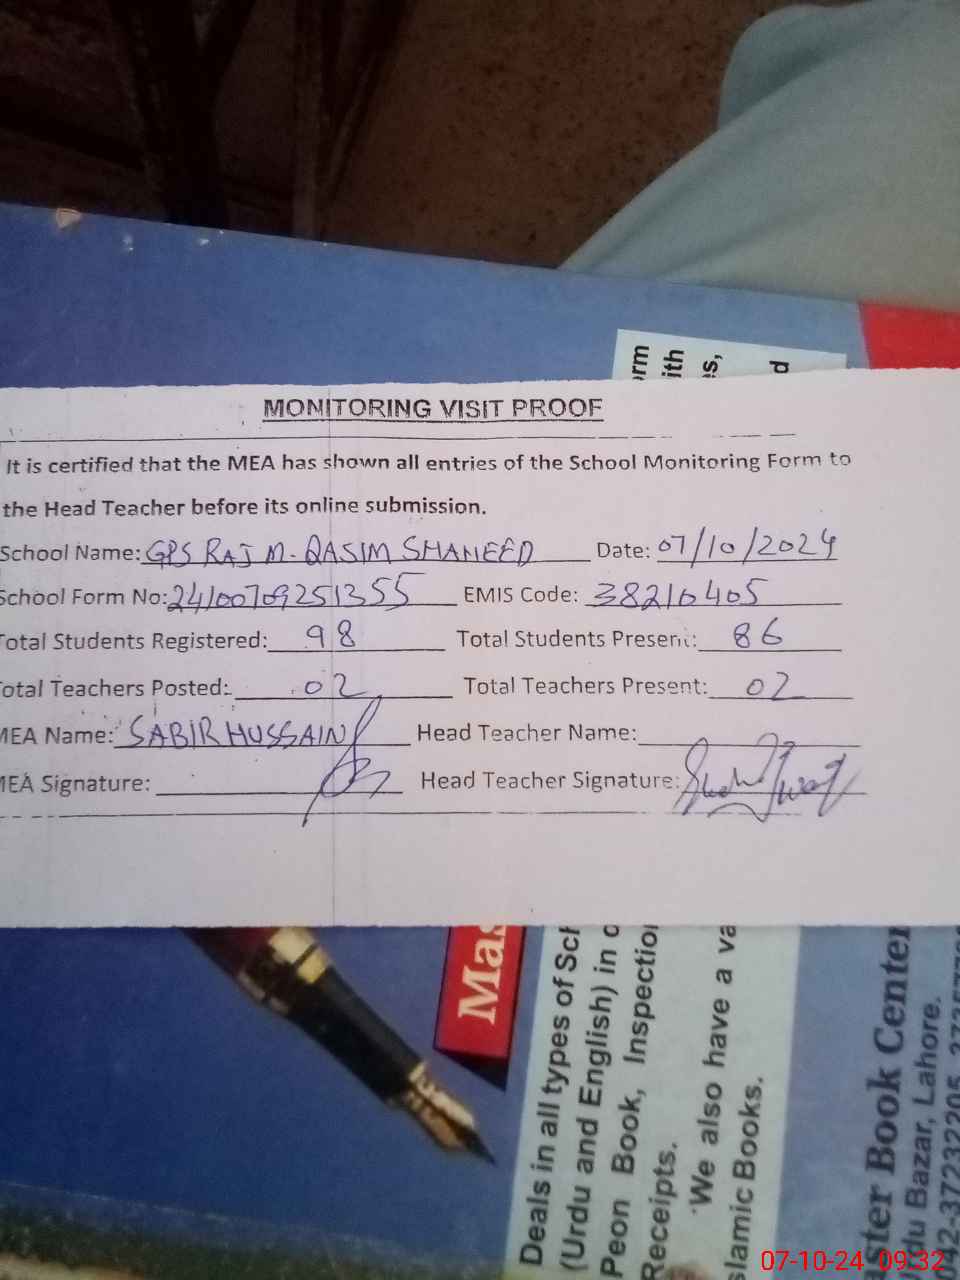 orm
ith
s,
d
MONITORING VISIT PROOF
It is certified that the MEA has shown all entries of the School Monitoring Form to
the Head Teacher before its online submission.
School Name: GPS RAJ M. QASIM SHAHEED Date: 07/10/2024
School Form No: 24100709251355 EMIS Code: 38210405
Total Students Registered: 98 Total Students Present: 86
Total Teachers Posted: 02 Total Teachers Present: 02
MEA Name: SABIR HUSSAIN Head Teacher Name:
MEA Signature: Head Teacher Signature:
Mas
Deals in all types of Sch
(Urdu and English) in c
Peon Book, Inspection
Receipts.
We also have a va
slamic Books.
ster Book Center
du Bazar, Lahore.
07-10-24 09:32